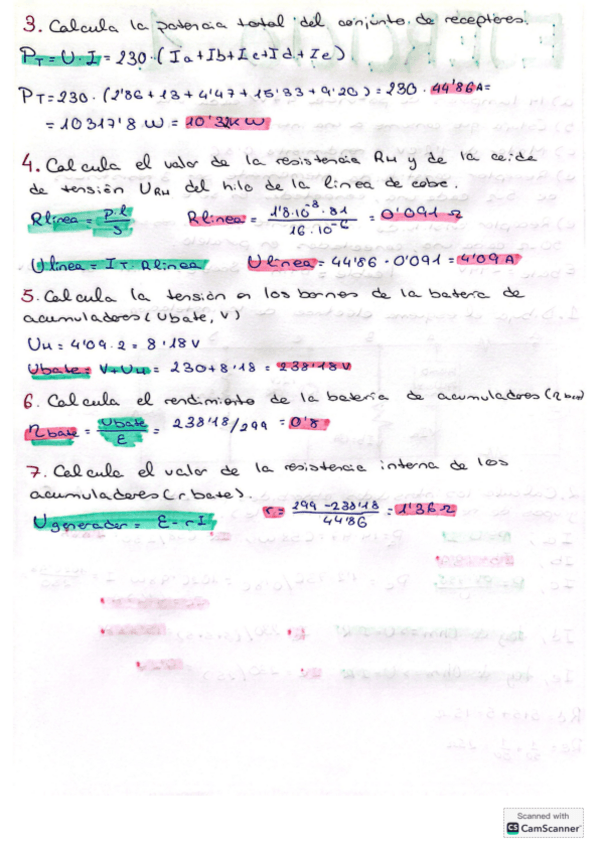 3. Calcula la potencia total del conjunto de receptores.
PT = U · I = 230 · (Ia + Ib + Ic + Id + Ie)
PT = 230 · (2'86 + 13 + 4'47 + 15'33 + 9'20) = 230 · 44'86A =
= 10317'8 W = 10'32KW
4. Calcula el valor de la resistencia RH y de la caída
de tensión URH del hilo de la línea de cobre.
Rlínea = ρ·l/s Rlínea = 1'8·10⁻⁸ · 81 / 16·10⁻⁶ = 0'091 Ω
Ulínea = IT · Rlínea Ulínea = 44'86 · 0'091 = 4'09 A
5. Calcula la tensión en los bornes de la batería de
acumuladores (Ubate, V)
UH = 4'09 · 2 = 8'18 V
Ubate = V + UH = 230 + 8'18 = 238'18 V
6. Calcula el rendimiento de la batería de acumuladores (η bat)
η bate = Ubate/ε = 238'18/299 = 0'8
7. Calcula el valor de la resistencia interna de los
acumuladores (r.bate).
Ugenerador = ε - rI r = 299 - 238'18 / 44'86 = 1'36 Ω
Scanned with
CS CamScanner